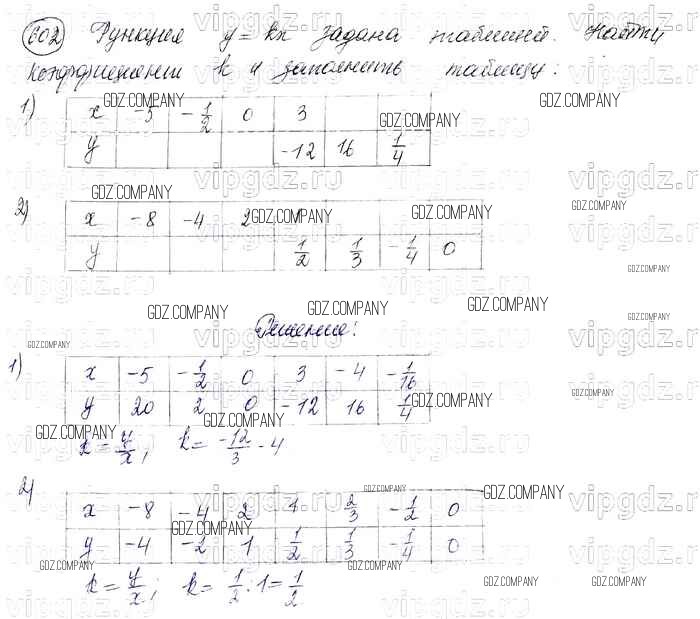 602 Функция y = kx задана таблицей. Найти
коэффициент k и заполнить таблицу:
1)
x -5 -1/2 0 3
y -12 16 1/4
2)
x -8 -4 2 1
y 1/2 1/3 -1/4 0
Решение:
1)
x -5 -1/2 0 3 -4 -1/16
y 20 2 0 -12 16 1/4
k = y/x; k = -12/3 - 4
2)
x -8 -4 2 1 2/3 -1/2 0
y -4 -2 1 1/2 1/3 -1/4 0
k = y/x; k = 1/2 · 1 = 1/2
GDZ.COMPANY
vipgdz.ru